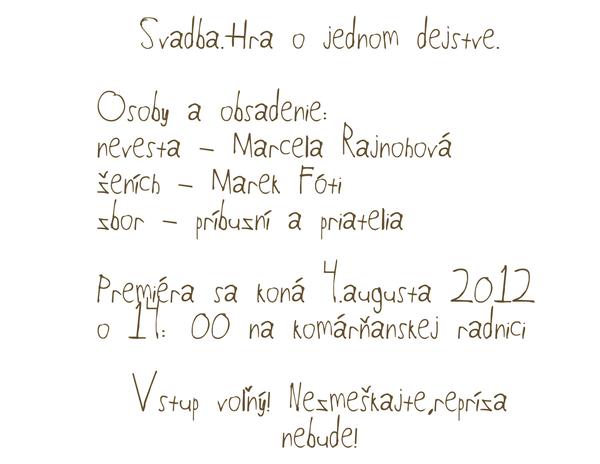 Svadba.Hra o jednom dejstve.
Osoby a obsadenie:
nevesta – Marcela Rajnohová
ženích – Marek Fóti
zbor – príbuzní a priatelia
Premiéra sa koná 4.augusta 2012
o 14: 00 na komárňanskej radnici
Vstup voľný! Nezmeškajte,repríza
nebude!